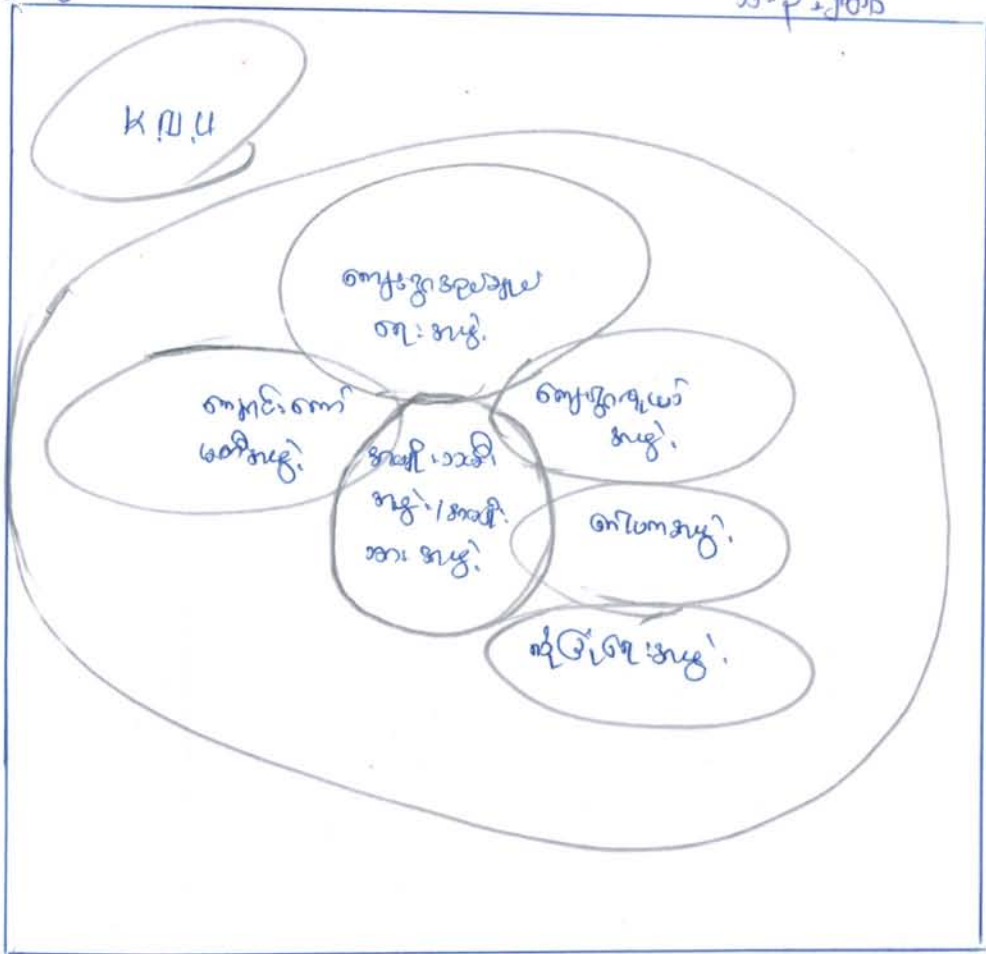 K N U
ကျေးရွာအုပ်ချုပ်
ရေး အဖွဲ့
ကျောင်းကော်
မတီအဖွဲ့
ကျေးရွာရာယာ်
အဖွဲ့
အမျိုးသမီး
အဖွဲ့ / အမျိုး
သား အဖွဲ့
ဂေါပကအဖွဲ့
ဖွံ့ဖြိုးရေးအဖွဲ့